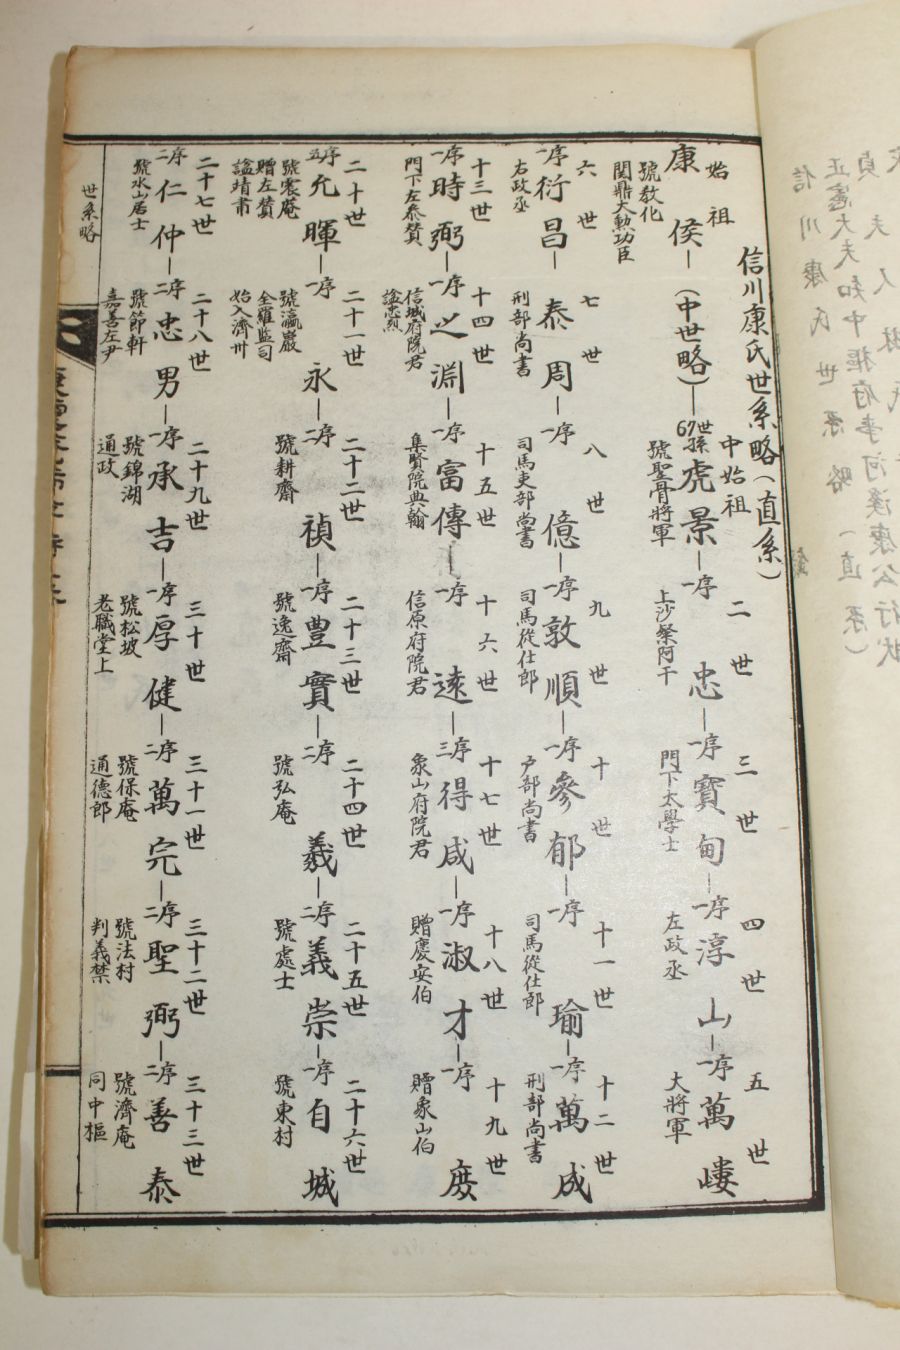 信川康氏世系略(直系)
始祖
康侯
號敎化
開鼎大勳功臣
(中世略)
67世孫
中始祖
虎景
號聖骨將軍
二世
序一
忠
上沙粲阿干
三世
序一
寶甸
門下太學士
四世
序一
淳山
左政丞
五世
序一
萬嶁
大將軍
六世
序一
衍昌
右政丞
七世
泰周
刑部尚書
八世
序一
億
司馬吏部尚書
九世
序一
敦順
司馬從仕郎
十世
序一
參郁
戶部尚書
十一世
序一
瑜
司馬從仕郎
十二世
序一
萬成
刑部尚書
十三世
序一
時弼
門下左泰贊
十四世
序一
之淵
信城府院君
諡忠烈
十五世
序一
富傳
集賢院典翰
十六世
序一
遠
信原府院君
十七世
序三
得咸
象山府院君
十八世
序一
淑才
贈慶安伯
十九世
序一
庹
贈象山伯
二十世
序五
允暉
號裳菴
贈左贊
諡靖肅
二十一世
序一
永
號瀛巖
全羅監司
始入濟州
二十二世
序二
禎
號耕齋
二十三世
序一
豊實
號逸齋
二十四世
序二
羲
號弘庵
二十五世
序二
義崇
號處士
二十六世
序一
自城
號東村
二十七世
序二
仁仲
號水山居士
二十八世
序二
忠男
號節軒
嘉善左尹
二十九世
序一
承吉
號錦湖
通政
三十世
序一
厚健
號松坡
老職堂上
三十一世
序二
萬完
號保庵
通德郎
三十二世
序二
聖弼
號法村
判義禁
三十三世
序二
善泰
號濟庵
同中樞
世系略